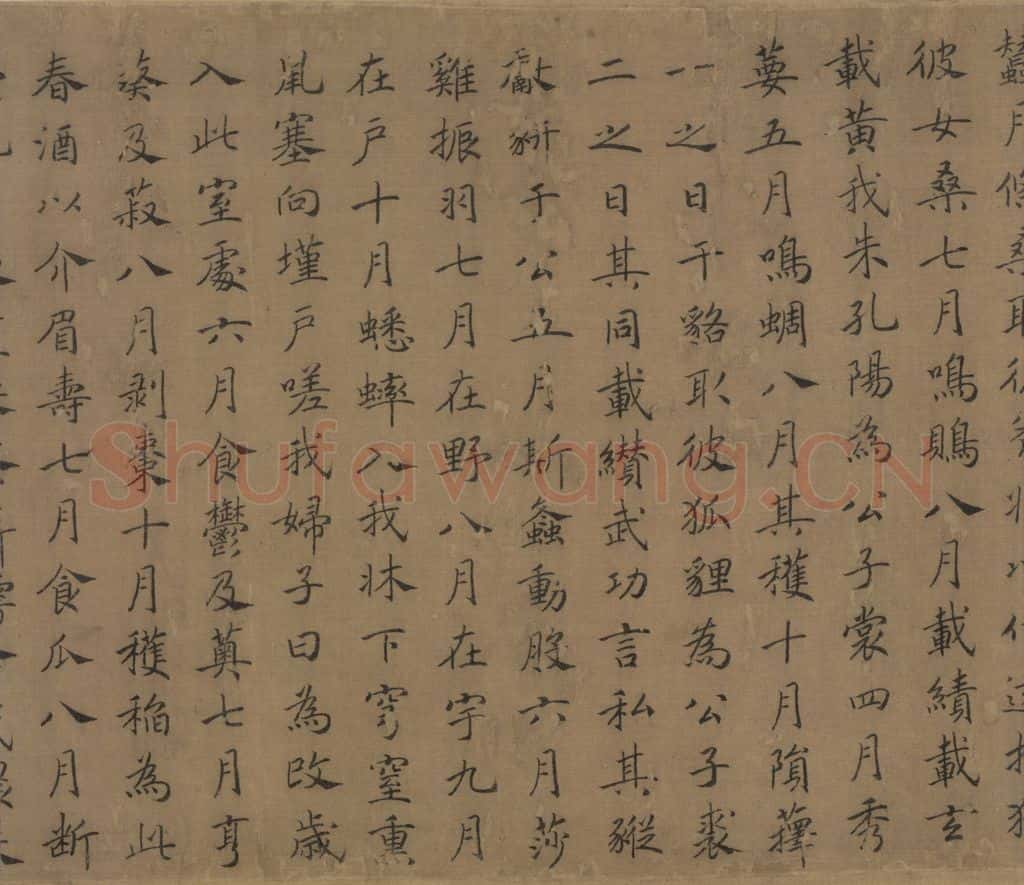 蠶月條桑取彼斧斨以伐遠揚猗
彼女桑七月鳴鵙八月載績載玄
載黃我朱孔陽為公子裳四月秀
葽五月鳴蜩八月其穫十月隕蘀
一之日于貉取彼狐貍為公子裘
二之日其同載纘武功言私其豵
獻豜于公五月斯螽動股六月莎
雞振羽七月在野八月在宇九月
在戶十月蟋蟀入我牀下穹窒熏
鼠塞向墐戶嗟我婦子曰為改歲
入此室處六月食鬱及薁七月亨
葵及菽八月剝棗十月穫稻為此
春酒以介眉壽七月食瓜八月断
Shufawang.CN